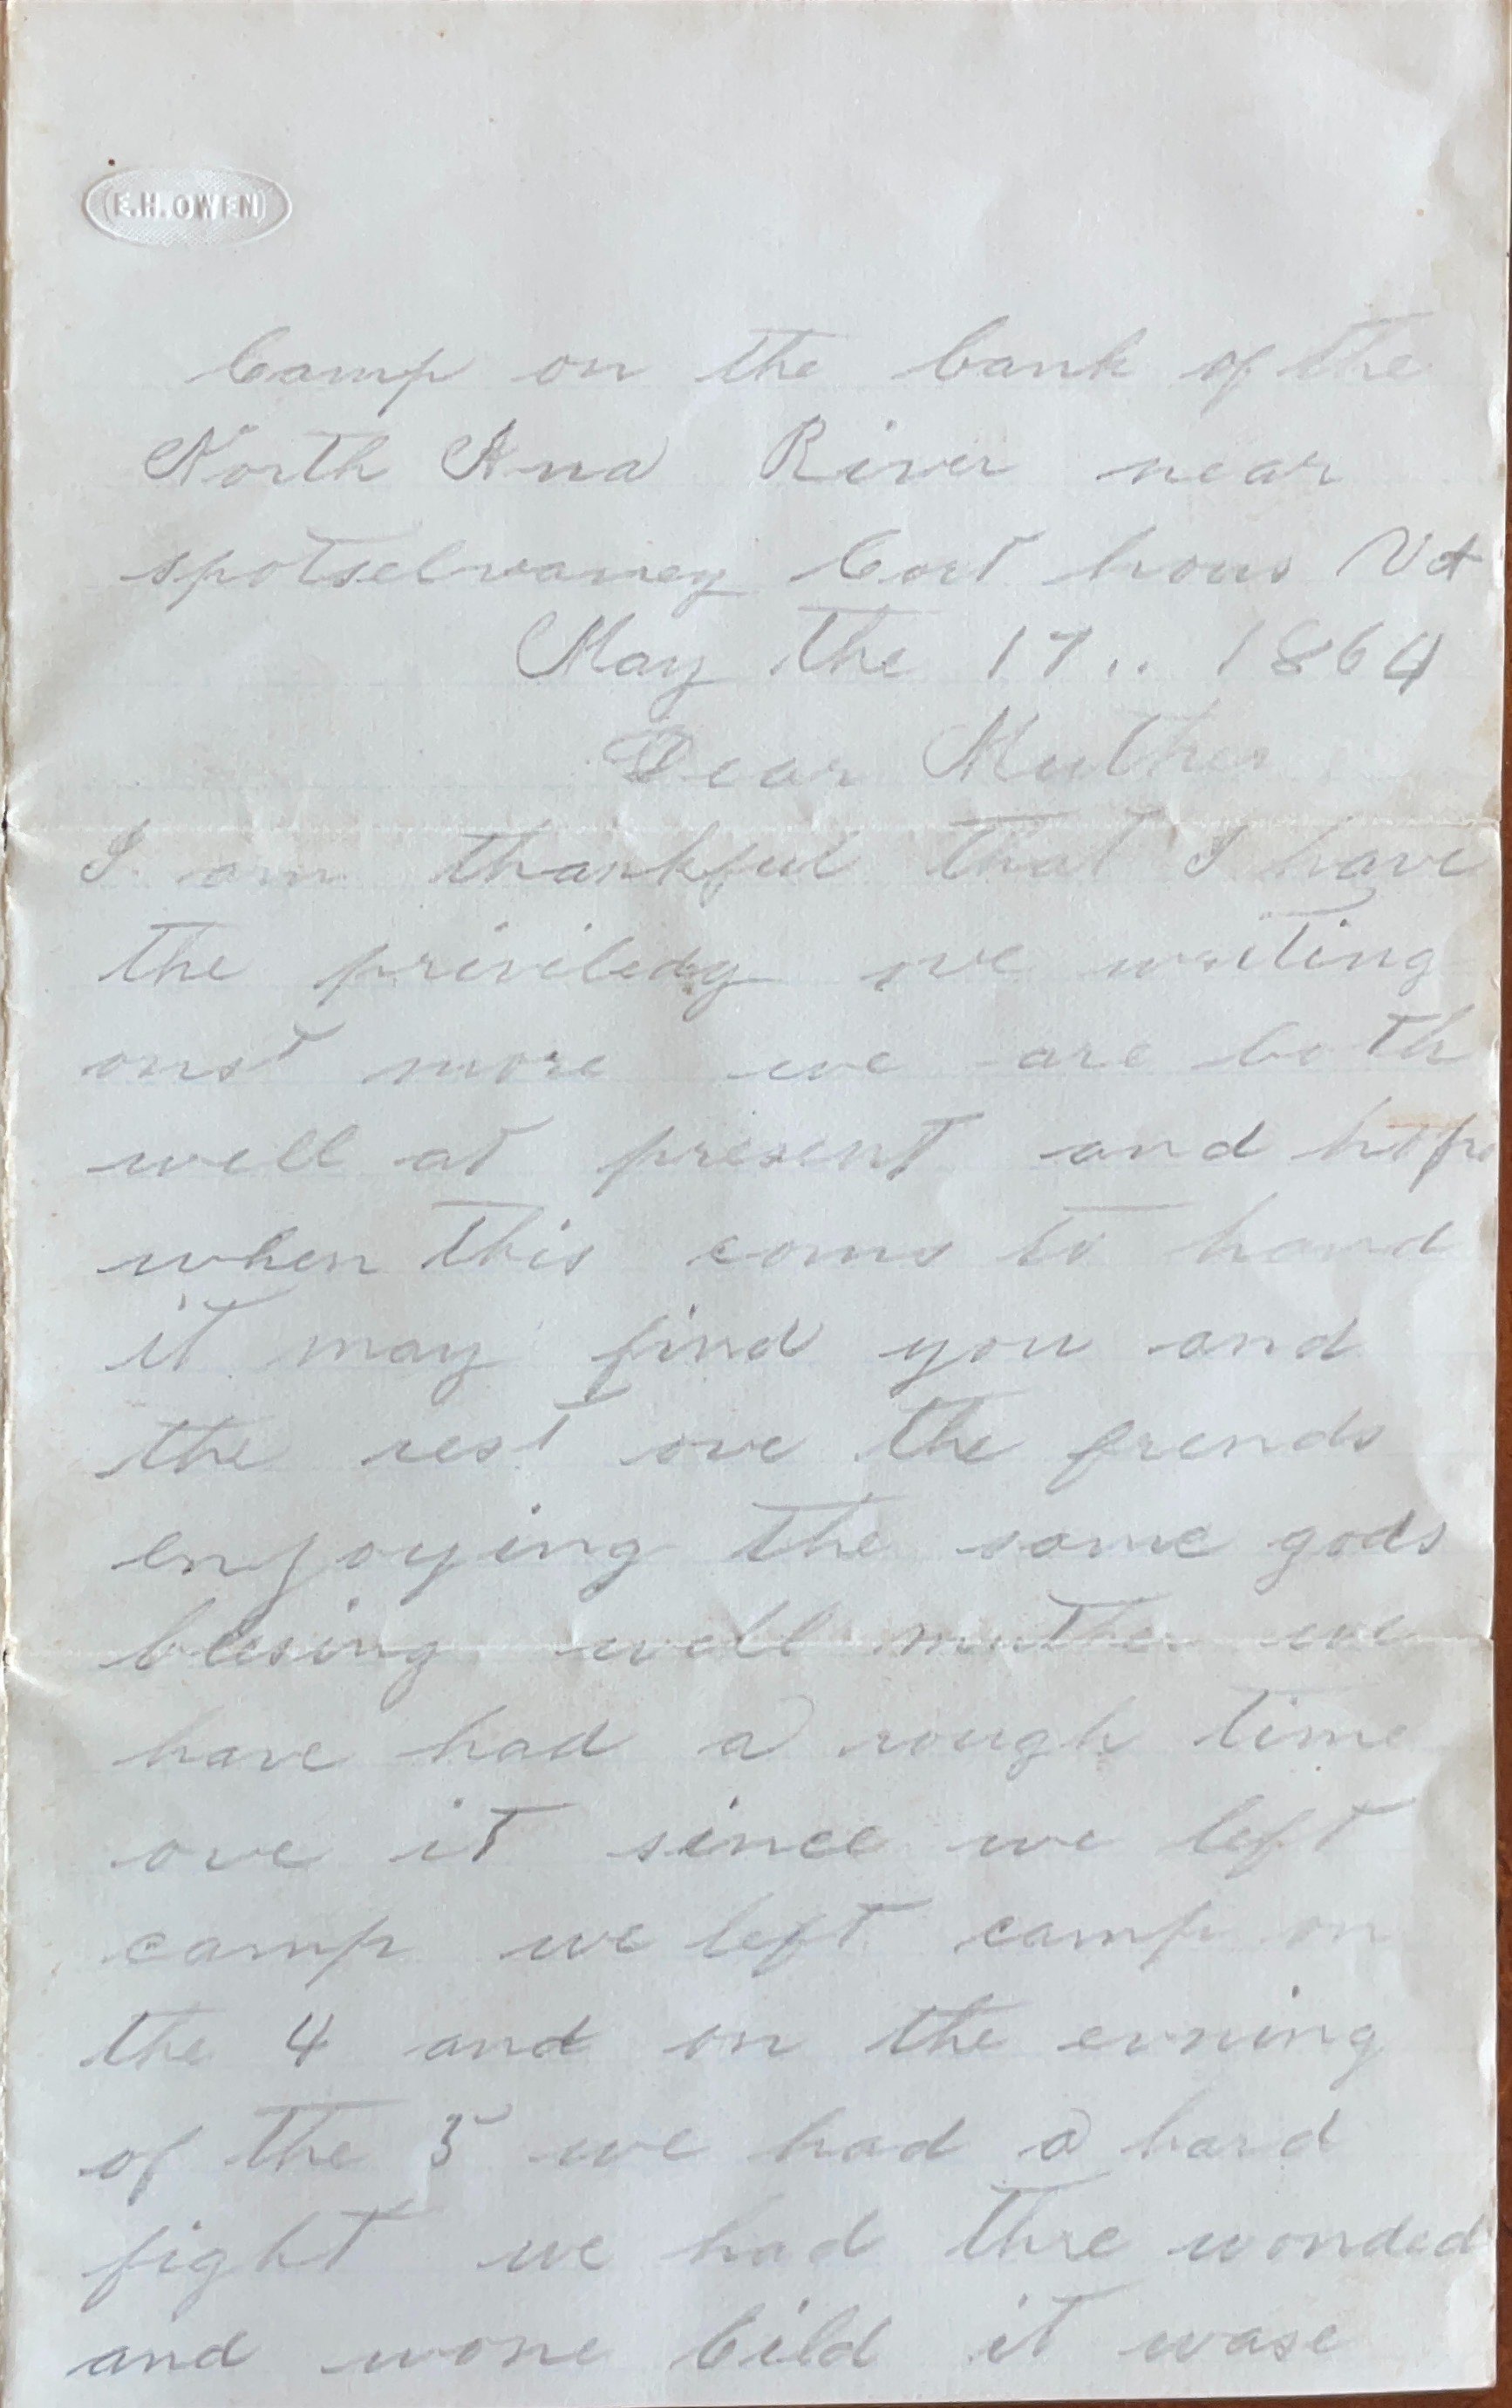 E.H. OWEN
Camp on the bank of the
North Ana River near
spotselvaney Cort hous Va
May the 17.. 1864
Dear Muther
I am thankful that I have
the priviledg ove writing
onst more we are both
well at present and hope
when this coms to hand
it may find you and
the rest ove the frends
enjoying the same gods
blesing well muther we
have had a rough time
ove it since we left
camp we left camp on
the 4 and on the evning
of the 5 we had a hard
fight we had thre wonded
and wone Cild it wase